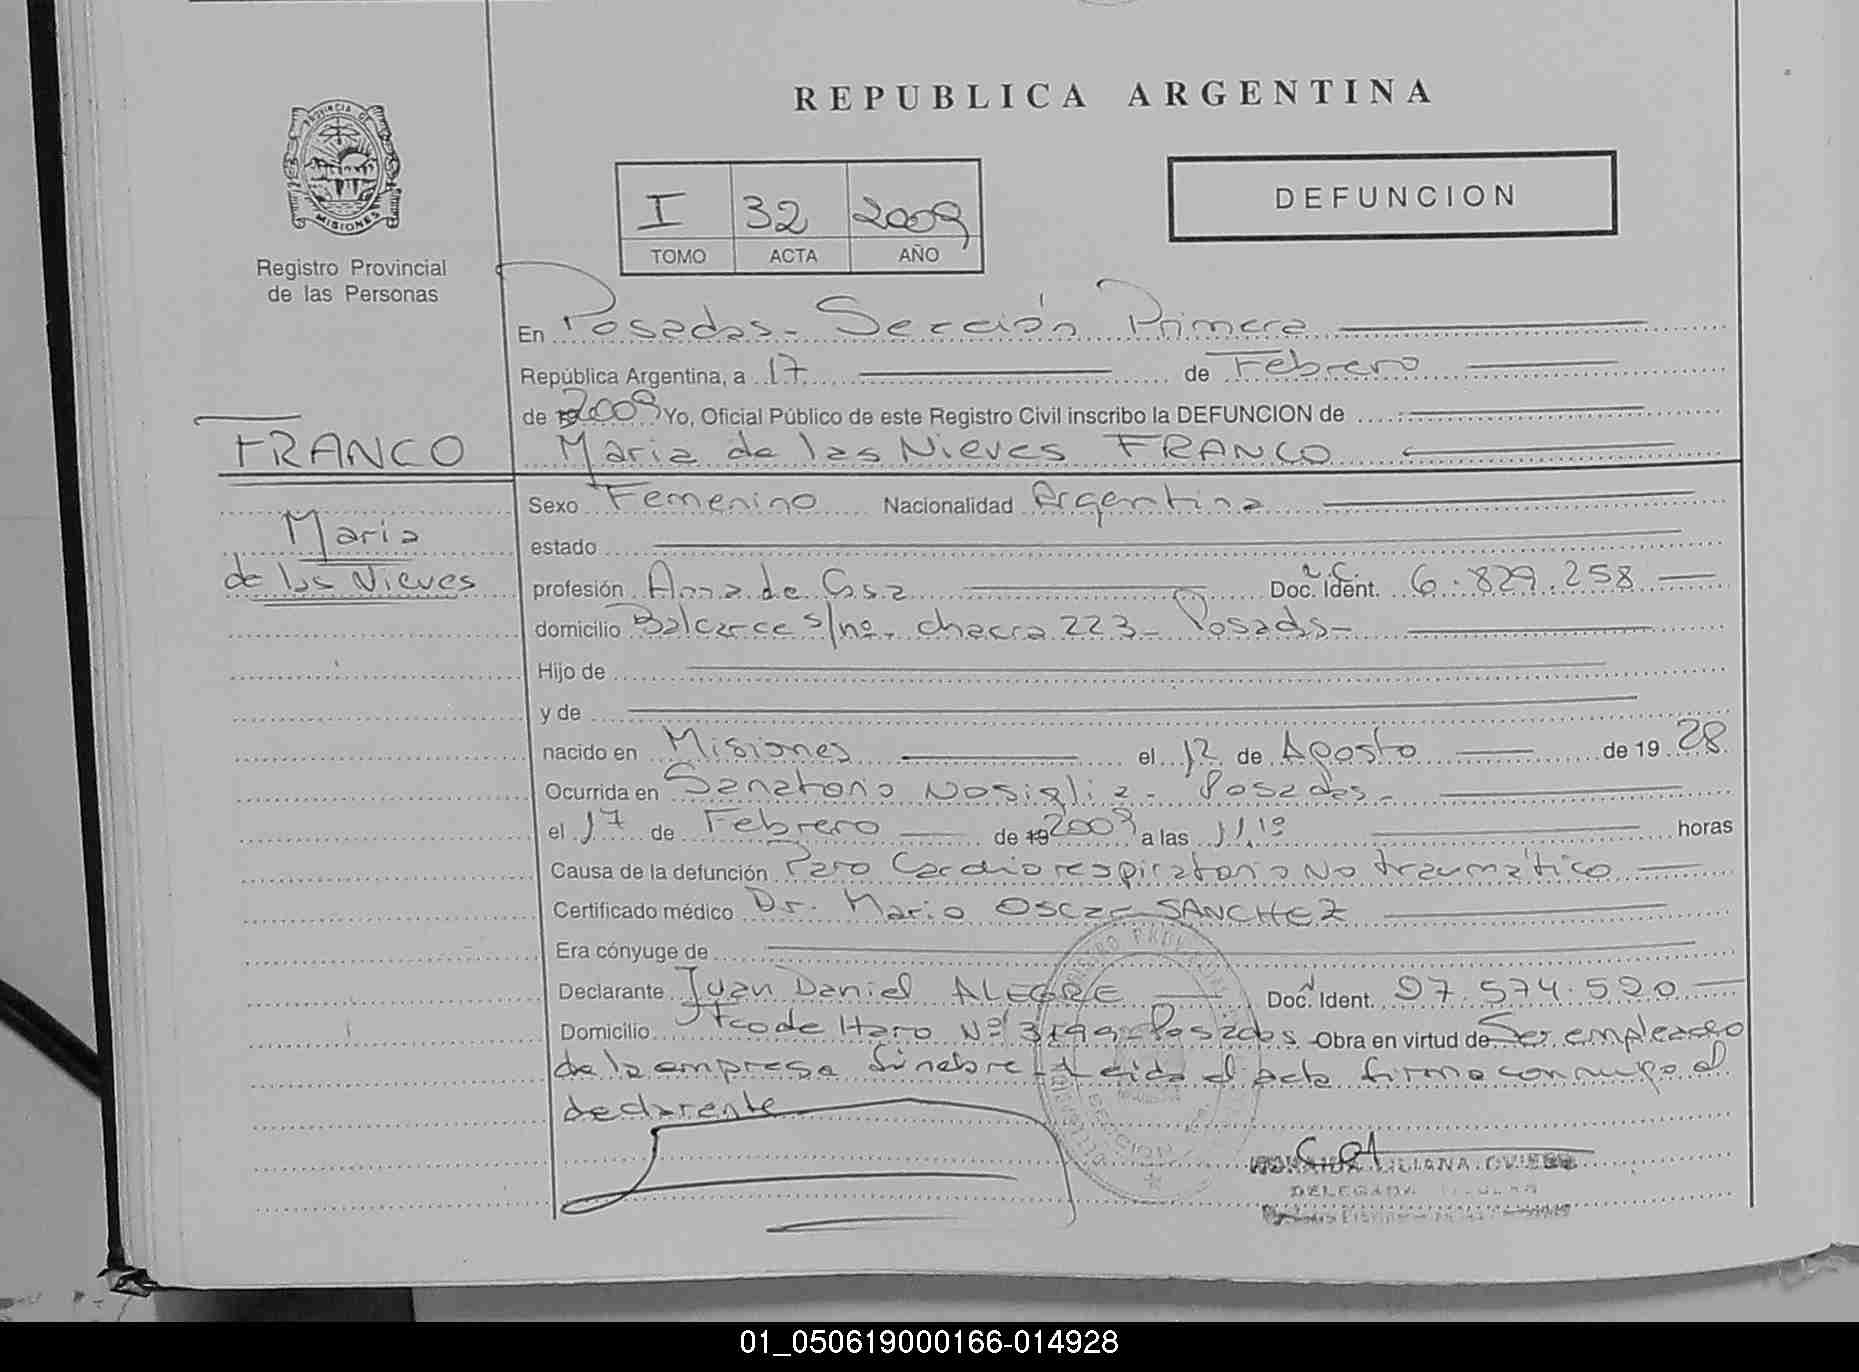 REPUBLICA ARGENTINA
PROVINCIA DE MISIONES
Registro Provincial
de las Personas
I 32 2009
TOMO ACTA AÑO
DEFUNCION
En Posadas - Sección Primera
República Argentina, a 17 de Febrero
de 2009 Yo, Oficial Público de este Registro Civil inscribo la DEFUNCION de
FRANCO
Maria de las Nieves FRANCO
Maria
de las Nieves
Sexo Femenino Nacionalidad Argentina
estado
profesión Ama de Casa Doc. Ident. L.C. 6.829.258
domicilio Balcarce s/nº. chacra 223 - Posadas -
Hijo de
y de
nacido en Misiones el 12 de Agosto de 1928
Ocurrida en Sanatorio Nosiglia - Posadas -
el 17 de Febrero de 19 2009 a las 11,10 horas
Causa de la defunción Paro Cardiorespiratorio No traumático
Certificado médico Dr. Mario Oscar SANCHEZ
Era cónyuge de
Declarante Juan Daniel ALEGRE Doc. Ident. 27.574.520
Domicilio Fco de Haro Nº 3199 - Posadas Obra en virtud de Ser empleado
de la empresa fúnebre - Leida el acta firma conmigo el
declarante
LILIANA OVIEDO
DELEGADA TITULAR
01_050619000166-014928